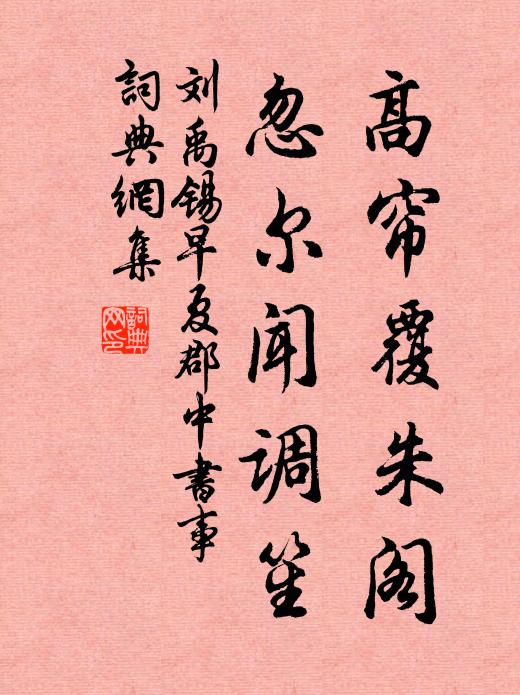 高帘覆朱阁
忽尔闻调笙
刘禹锡早夏郡中書事
詞典網集
詞典网印